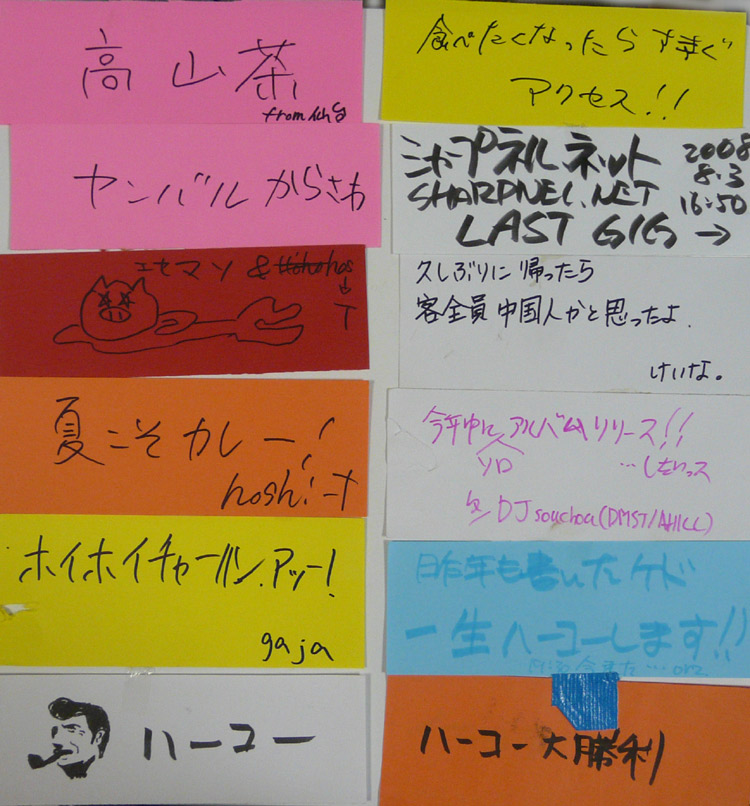 高山茶
from ichg
ヤンバルからさわ
エセマソ & Hohohos
↓
T
夏こそカレー!
hoshi-t
ホイホイチャーハン.アッー!
gaja
ハーコー
食べたくなったらすぐ
アクセス!!
シャープネルネット 2008
8.3
SHARPNEL.NET 16:50
LAST GIG →
久しぶりに帰ったら
客全員中国人かと思ったよ.
けいな。
今年中にアルバムリリース!!
ソロ …したいっス
by DJ souchou(DMST/AHICC)
昨年も書いたケド
一生ハーコーします!!
…orz
ハーコー大勝利